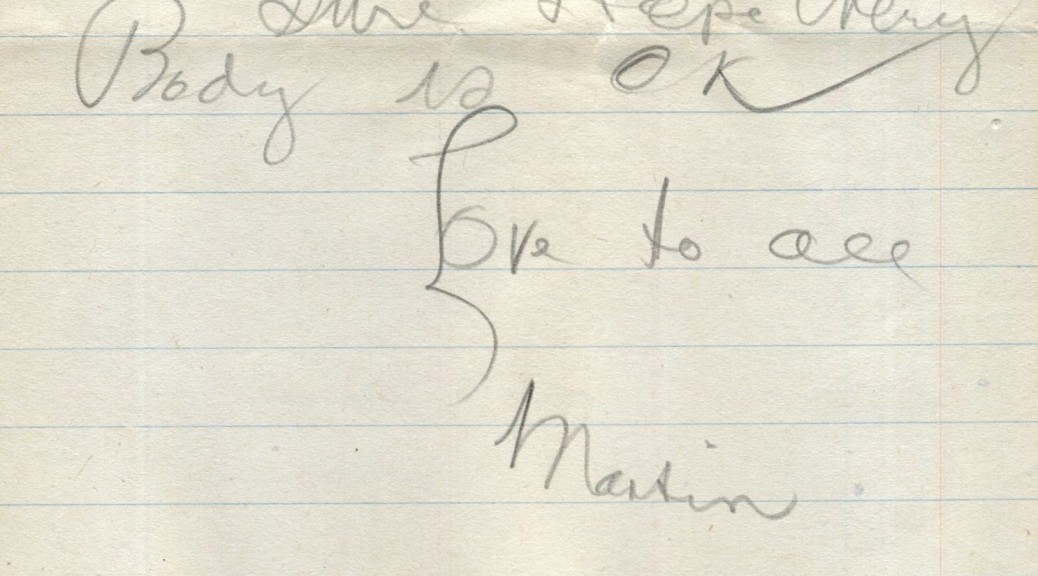 Sure Hope Every
Body is OK
Love to all
Martin